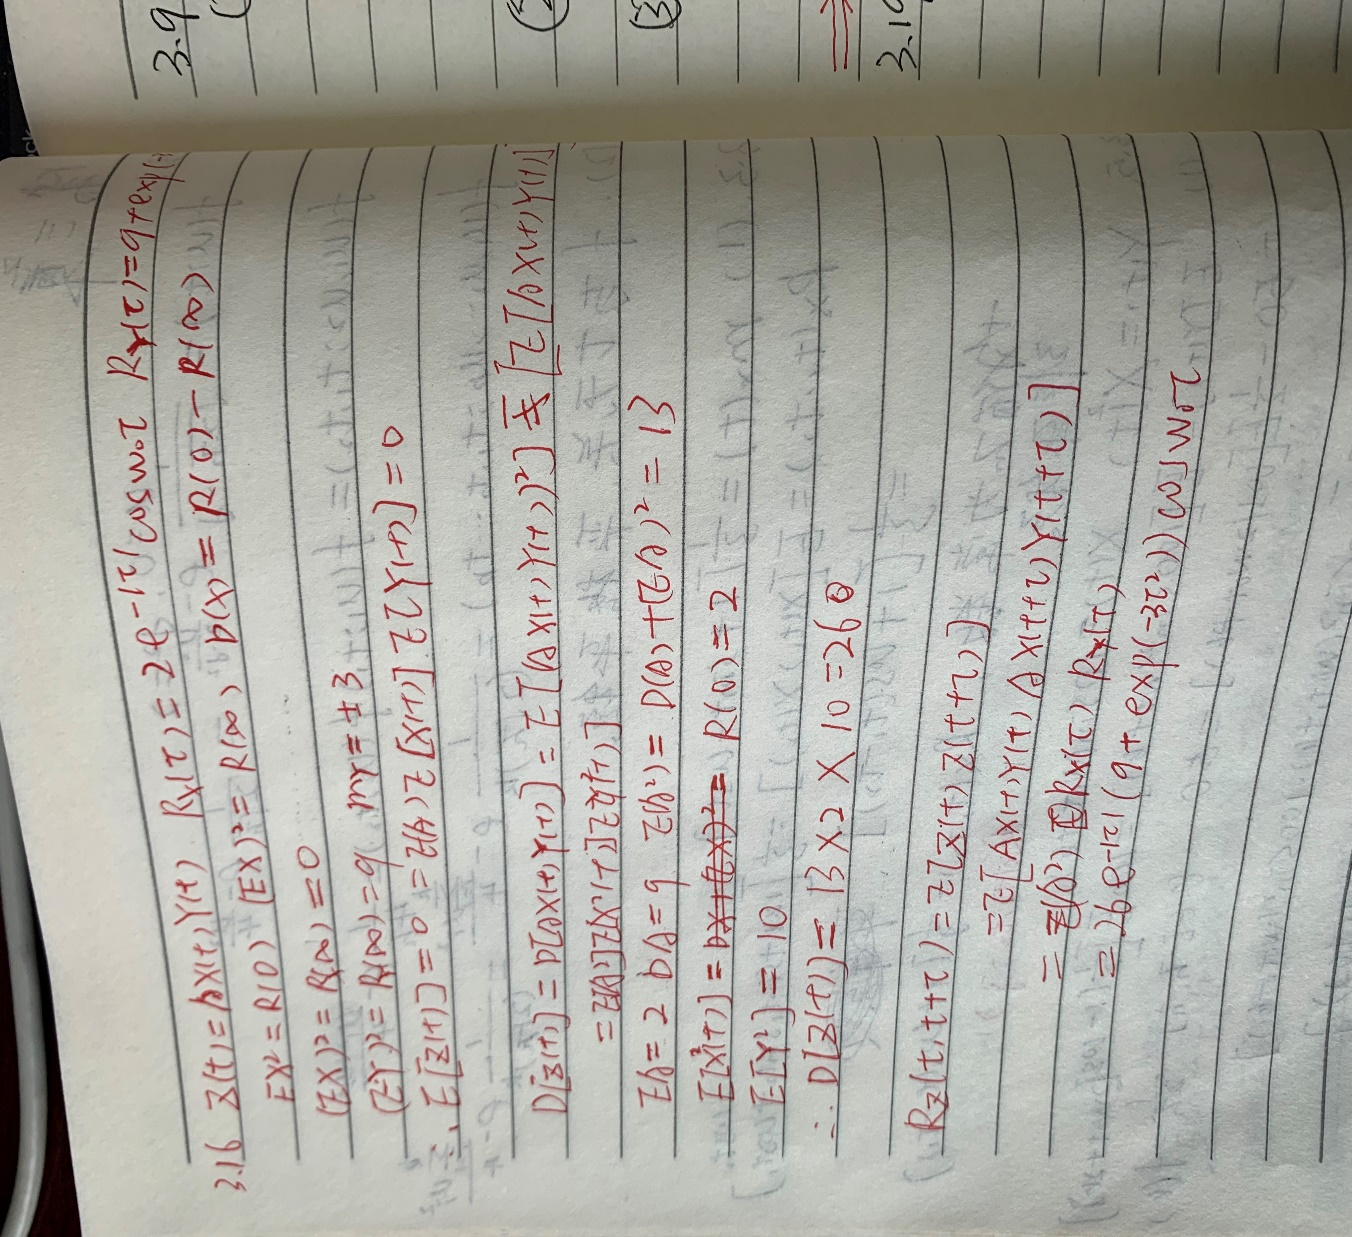 3.9
3.10
3.16 Z(t)=AX(t)Y(t) Rx(τ)=2e^{-|τ|}cosω₀τ Rʏ(τ)=9+exp(-
EX²=R(0) (EX)²=R(∞) D(X)=R(0)-R(∞)
(EX)²=R(∞)=0
(EY)²=R(∞)=9 mʏ=±3
∴ E[Z(t)]=0=E(A)E[X(t)]E[Y(t)]=0
D[Z(t)]=D[AX(t)Y(t)]=E[(AX(t)Y(t))²]-[E[AX(t)Y(t)]
=E[A²]E[X²(t)]E[Y²(t)]
EA=2 DA=9 E(A²)=D(A)+(EA)²=13
E[X²(t)]=R(0)=2
E[Y²]=10
∴ D[Z(t)]=13×2×10=260
Rz(t,t+τ)=E[Z(t)Z(t+τ)]
=E[AX(t)Y(t)AX(t+τ)Y(t+τ)]
=E(A²)Rx(τ)Rʏ(τ)
=26e^{-|τ|}(9+exp(-3τ²))cosω₀τ